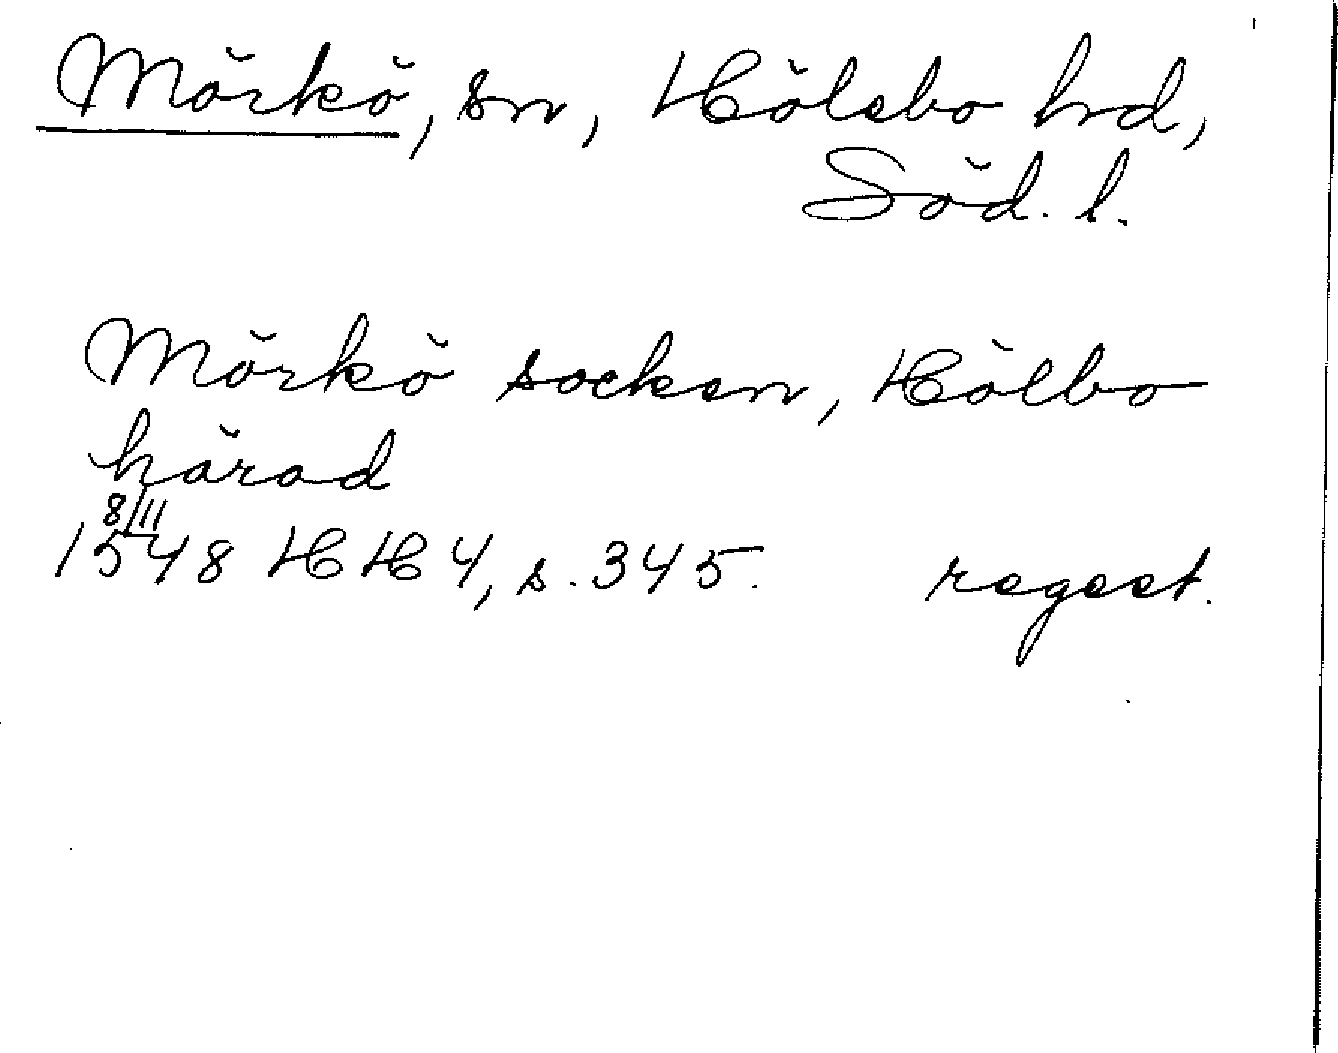 Mörkö, sn, Hölebo hrd,
Söd. l.
Mörkö socken, Hölbo
härad
8/11
1548 HH 4, s. 345. regest.